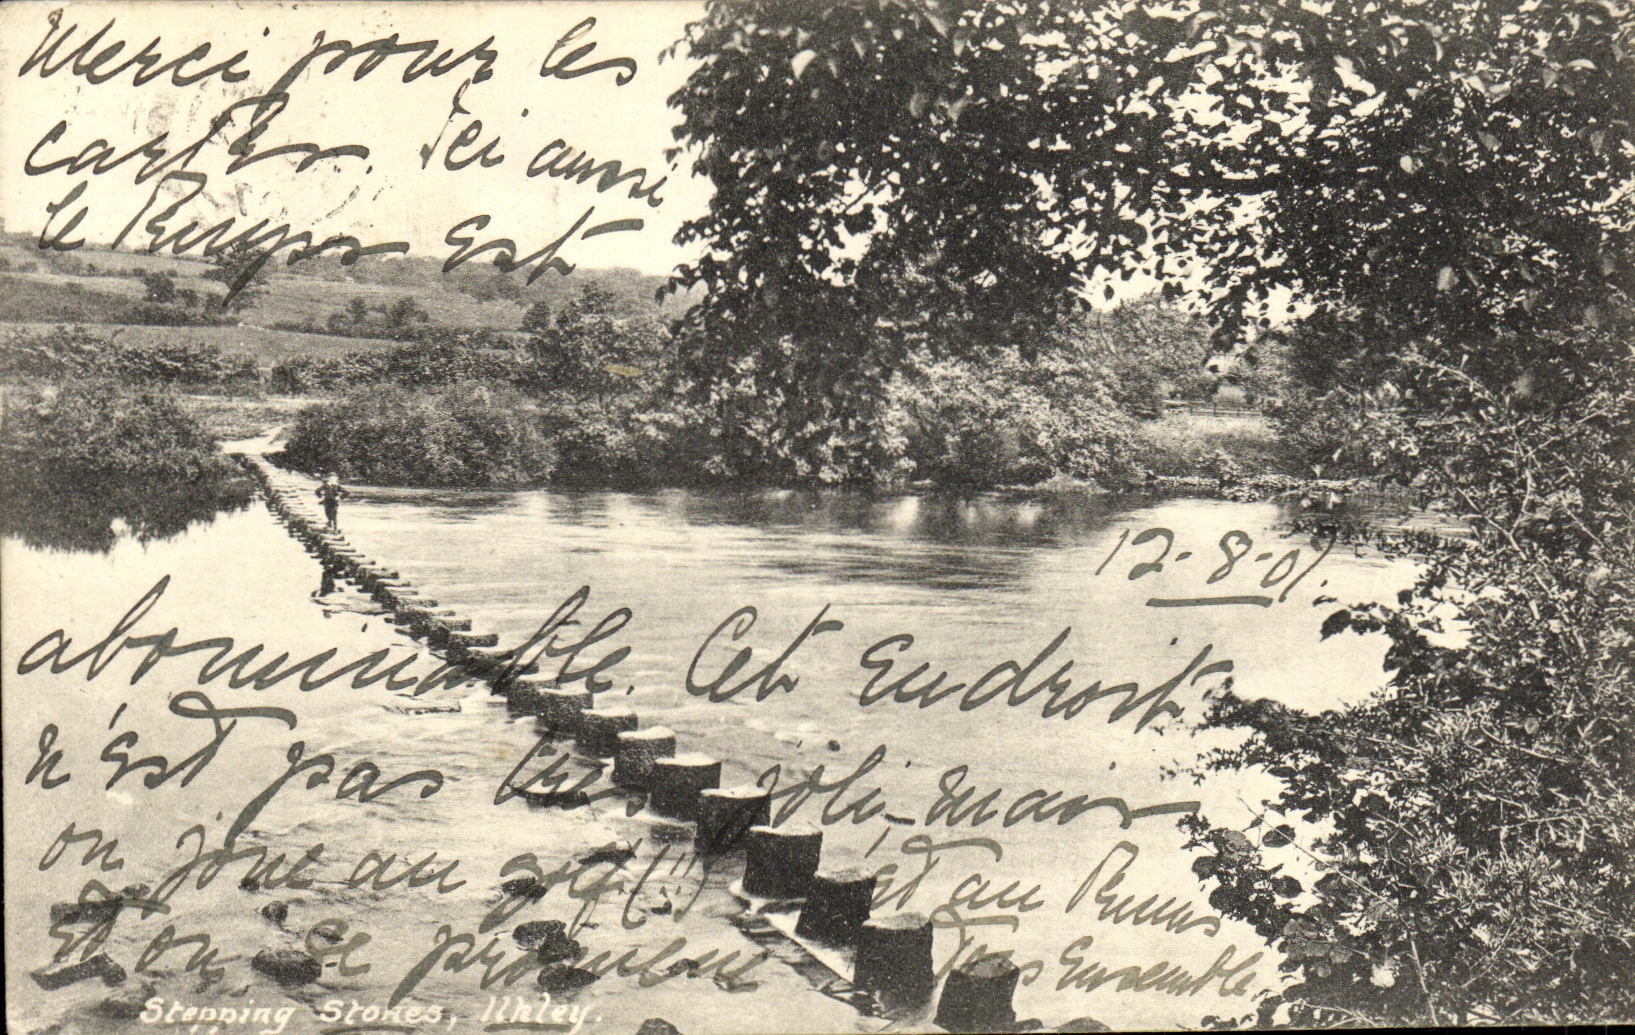 Merci pour les
cartes. Ici aussi
le temps est
12-8-07.
abominable. Cet endroit
n'est pas très joli - mais
on joue au golf (!!) et au tennis
et on se promène tous ensemble.
Stepping Stones, Ilkley.